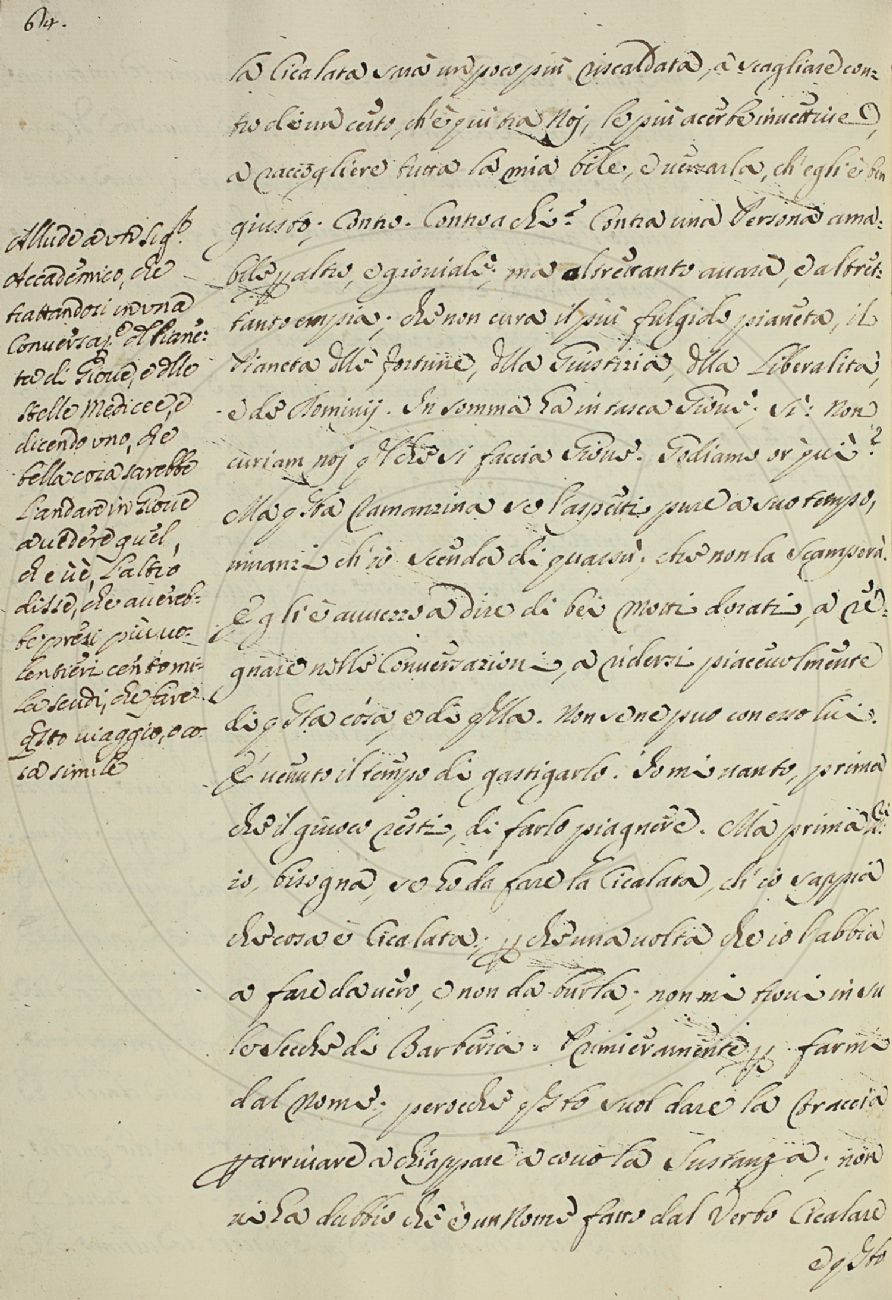 64.
la Cicalata sarà un poco più riscaldata, a scagliare con=
tro di un certo, ch'è qui tra Noj, le più acerbe invettive,
a raccogliere tutta la mia bile, e versarla, ch'egli è ben
giusto. Contro. Contro a chi? Contra una Persona ama=
bile altro, e gioviale; ma altrettanto avara, e altret=
tanto empia; che non cura il più fulgido pianeta, il
Pianeta dlle fortune, dlla Giustizia, dlla Liberalità,
e de Dominij. In somma ha in tasca Giove; sì: Non
curiam noj ql che si faccia Giove. Godiamo or qui?
Ma qsta Ramanzina se l'aspetti pure a suo tempo,
innanzi ch'io scenda di quassù; che non la scamperà.
Egli è avvezzo a dire di bei Motti dorati, a re=
gnare nelle Conversazioni, a ridersi piacevolmente
di qsta cosa, e di qlla. Non se ne può con esso lui.
È venuto il tempo di gastigarlo. Io mi vanto, prima
che il giuoco resti, di farlo piagnere. Ma prima di
io, bisogna, se ho da fare la Cicalata, ch'io sappia
che cosa è Cicalata; che una volta che io l'abbia
a fare da vero, e non da burla; non mi trovi in su
le secche di Barberia. Primieramente farmi
dal Nome; perocchè qsto suol dare la traccia
arrivare a chiappare a covo la Sustanza; non
vi ha dubbio che è un Nome fatto dal Verbo Cicalare
e qsto
Allude a un Sigr.
Accademico, che
trattandosi in una
Conversaze. dl Piane=
ta di Giove, e dlle
stelle Medicee, e
dicendo uno, che
bella cosa sarebbe
l'andare in Giove
a vedere quel,
che v'è, l'altro
disse, che avereb=
be presi più vo=
lentieri cento mi=
la scudi, che fare
qsto viaggio, o co=
sa simile